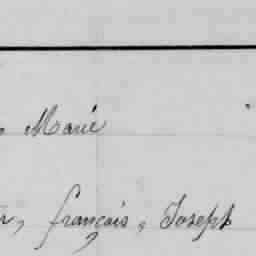 , Marie
, françois, Joseph